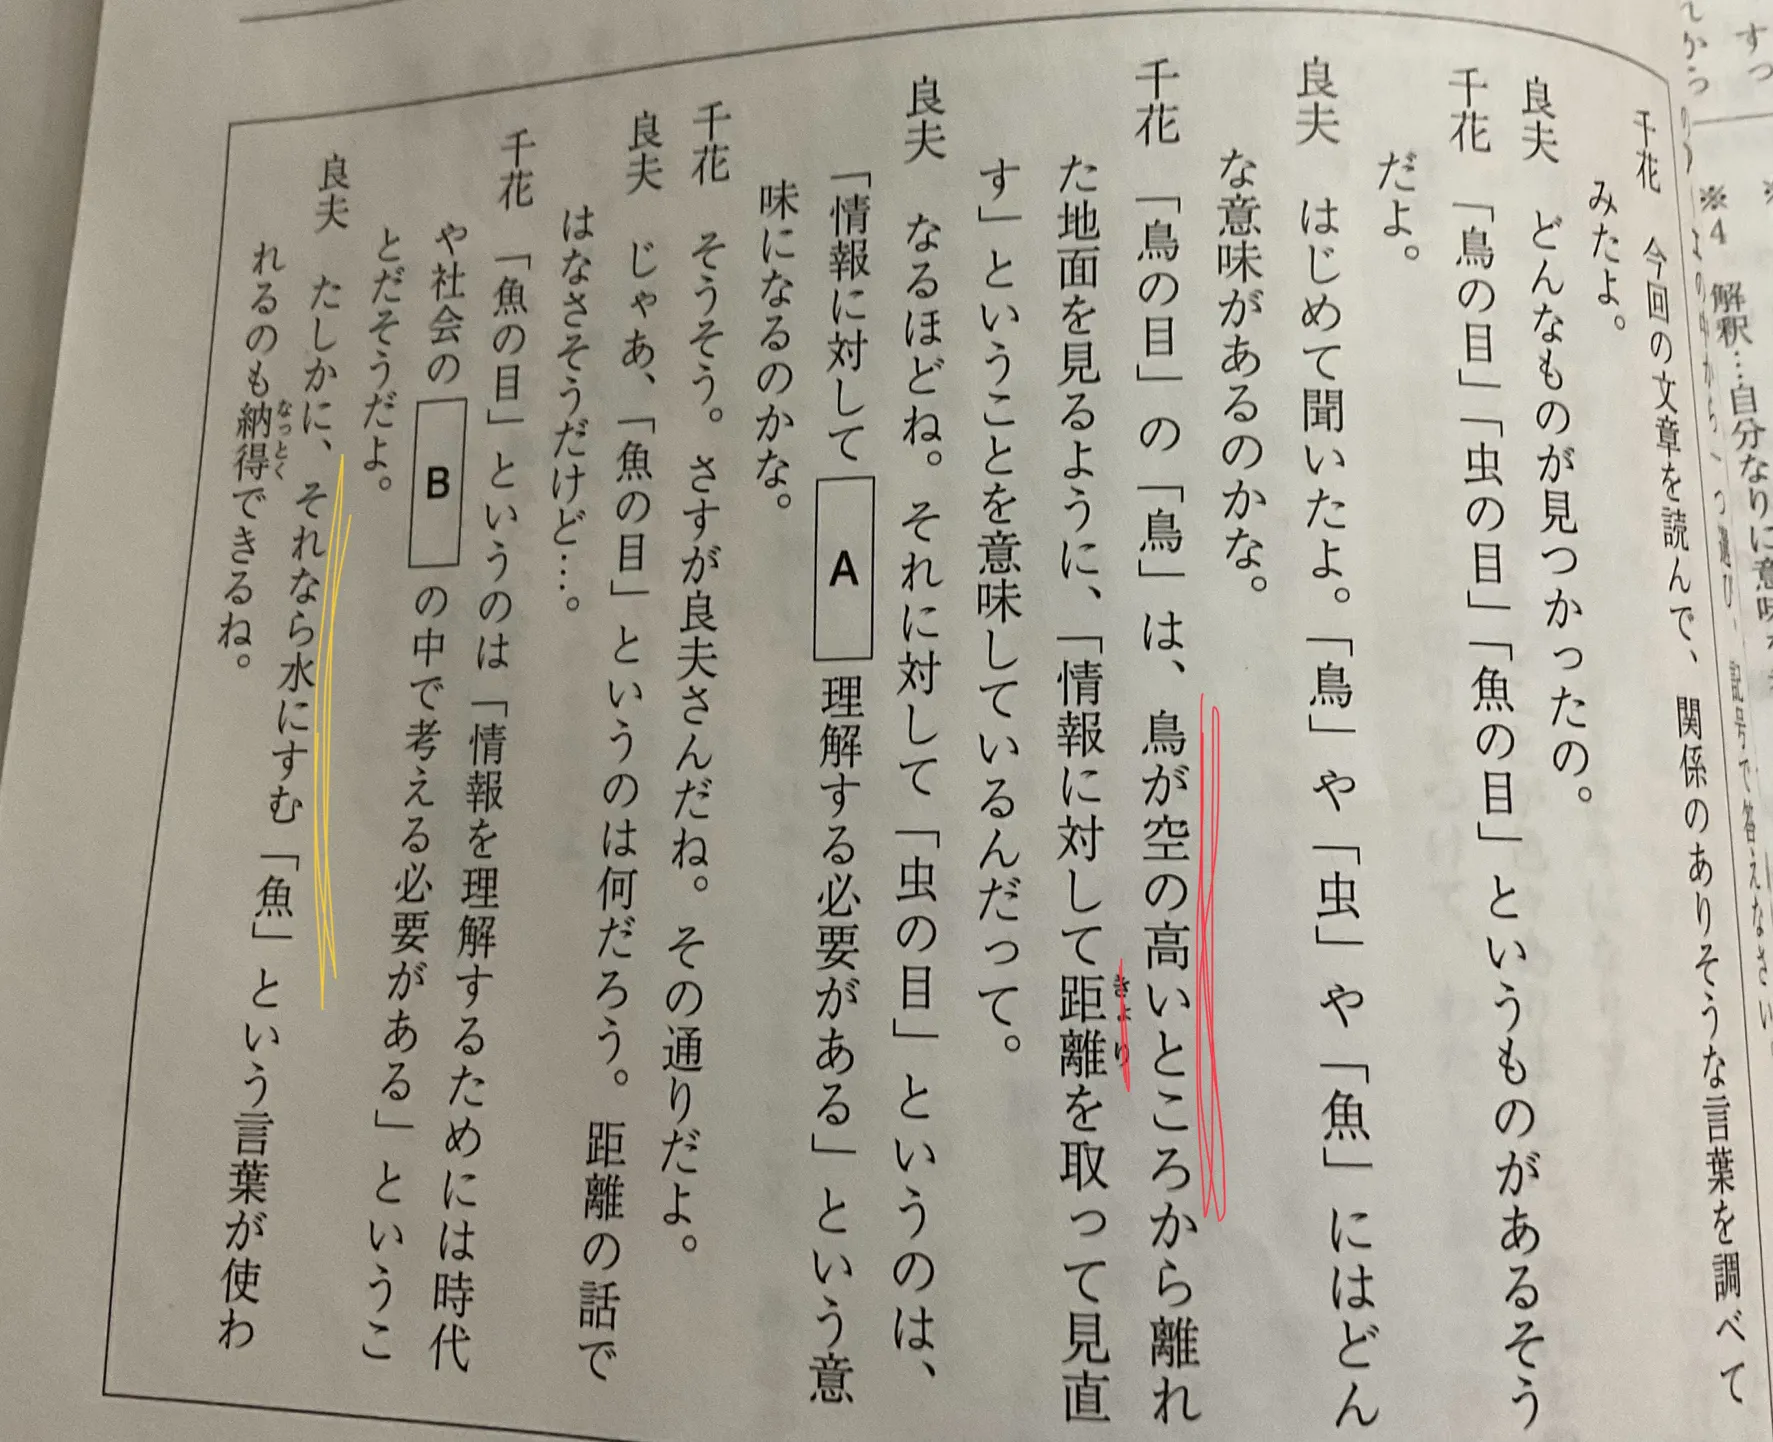 ※4 解釈…自分なりに意味
千花 今回の文章を読んで、関係のありそうな言葉を調べて
みたよ。
良夫 どんなものが見つかったの。
千花 「鳥の目」「虫の目」「魚の目」というものがあるそう
だよ。
良夫 はじめて聞いたよ。「鳥」や「虫」や「魚」にはどん
な意味があるのかな。
千花 「鳥の目」の「鳥」は、鳥が空の高いところから離れ
た地面を見るように、「情報に対して距離を取って見直
きょり
す」ということを意味しているんだって。
良夫 なるほどね。それに対して「虫の目」というのは、
「情報に対してA理解する必要がある」という意
味になるのかな。
千花 そうそう。さすが良夫さんだね。その通りだよ。
良夫 じゃあ、「魚の目」というのは何だろう。距離の話で
はなさそうだけど…。
千花 「魚の目」というのは「情報を理解するためには時代
や社会のBの中で考える必要がある」というこ
とだそうだよ。
良夫 たしかに、それなら水にすむ「魚」という言葉が使わ
れるのも納得できるね。
なっとく